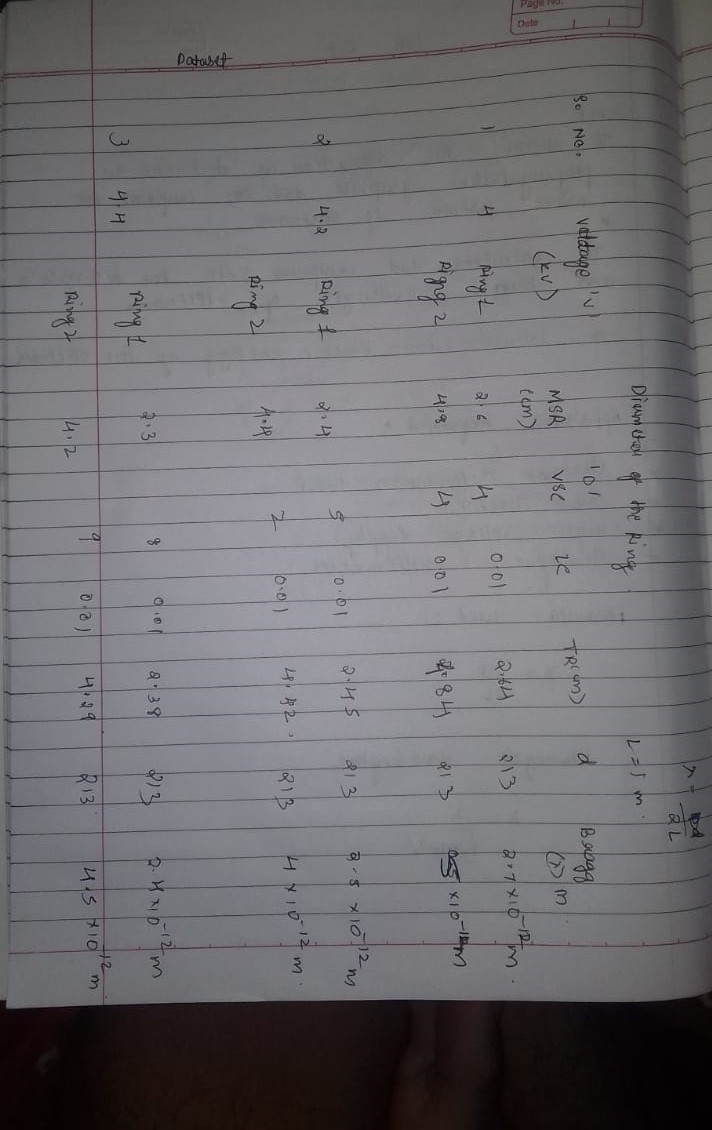 Page No.
Date
λ = d / 2L
L = 1 m.
Diameter of the Ring.
So. No. Voltage 'V' (kV) 'D' MSR (cm) VSC LC TR(cm) d Bragg (λ) m.
1 4 Ring 1 2.6 4 0.01 2.64 213 2.7 × 10⁻¹² m.
Ring 2 4.8 4 0.01 4.84 213 5 × 10⁻¹² m
2 4.2 Ring 1 2.4 5 0.01 2.45 213 2.5 × 10⁻¹² m
Ring 2 4.4 2 0.01 4.42. 213 4 × 10⁻¹² m.
3 4.4 Ring 1 2.3 8 0.01 2.38 213 2.4 × 10⁻¹² m
Ring 2 4.2 9 0.01 4.29 213 4.5 × 10⁻¹² m
Dataset